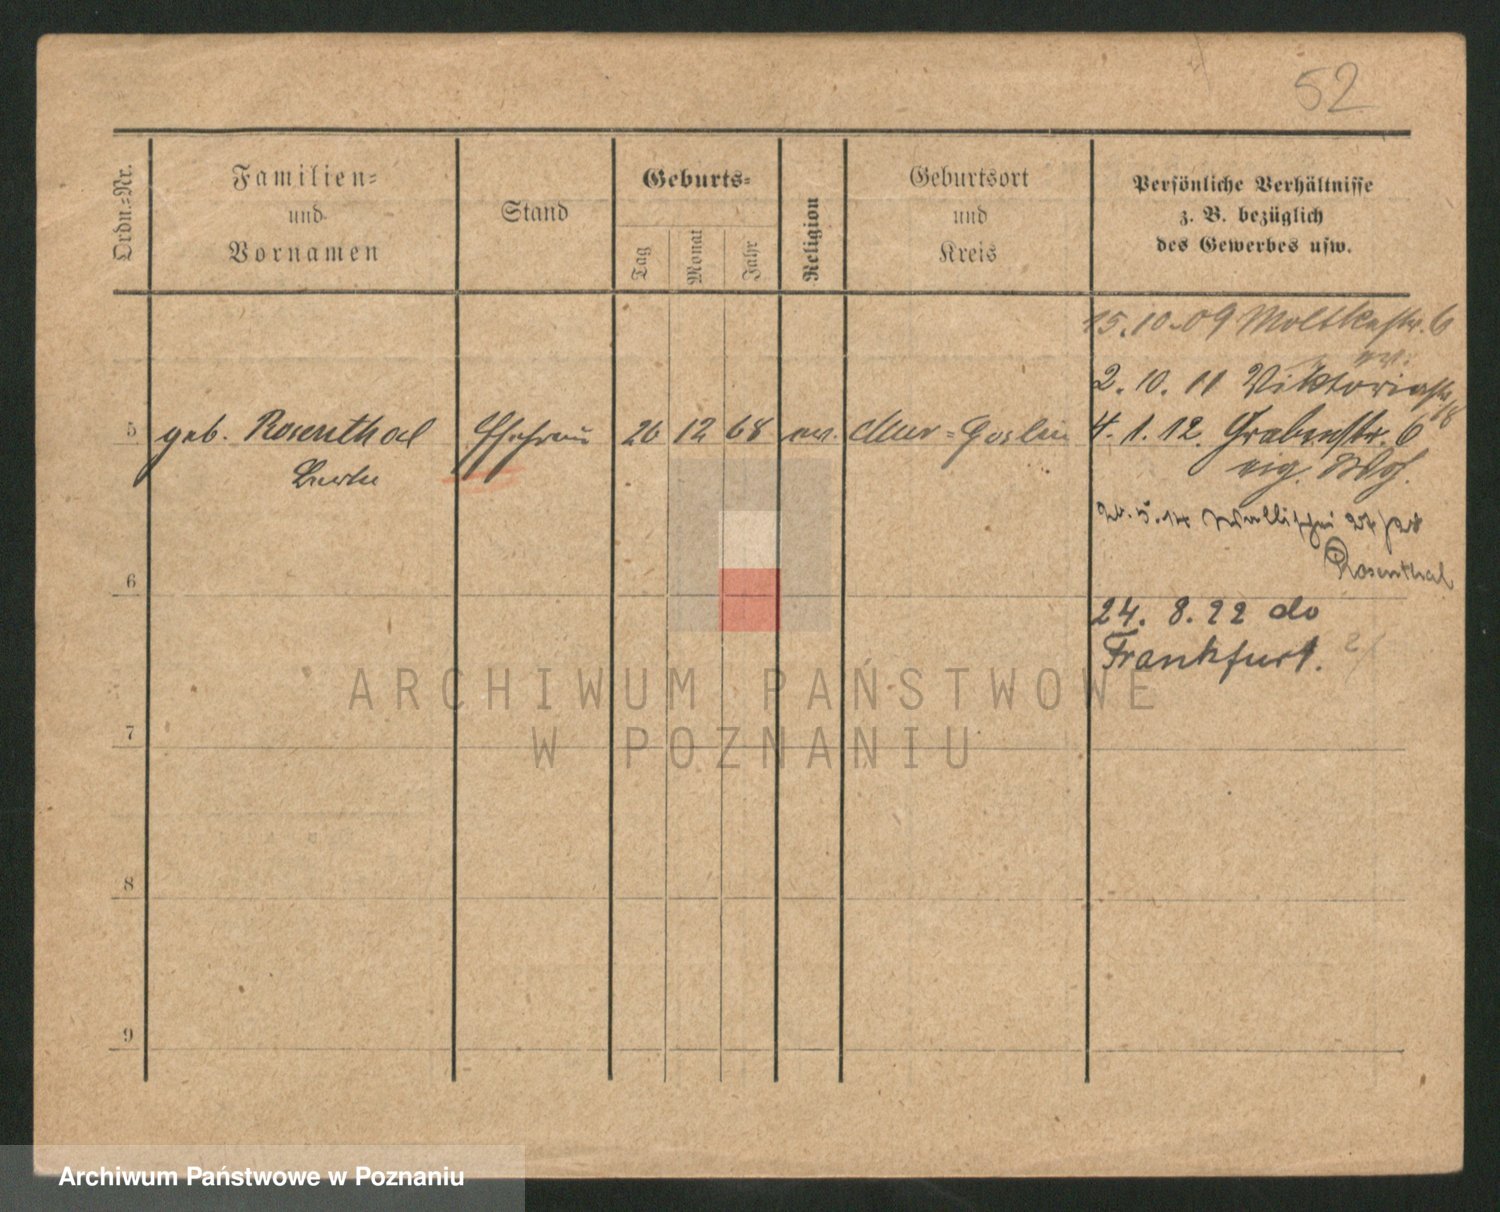 52
Ordn.-Nr.
Familien-
und
Vornamen
Stand
Geburts-
Tag
Monat
Jahr
Religion
Geburtsort
und
Kreis
Persönliche Verhältnisse
z. B. bezüglich
des Gewerbes usw.
15.10.09 Moltkestr. 6
2.10.11 Viktoriastr. 18
5 geb. Rosenthal Ehefrau 26 12 68 Mur-Goslin 4.1.12. Grabenstr. 6
eig.
Wallischei
Rosenthal
6
24. 8. 22 do
Frankfurt.
7
8
9
ARCHIWUM PAŃSTWOWE
W POZNANIU
Archiwum Państwowe w Poznaniu